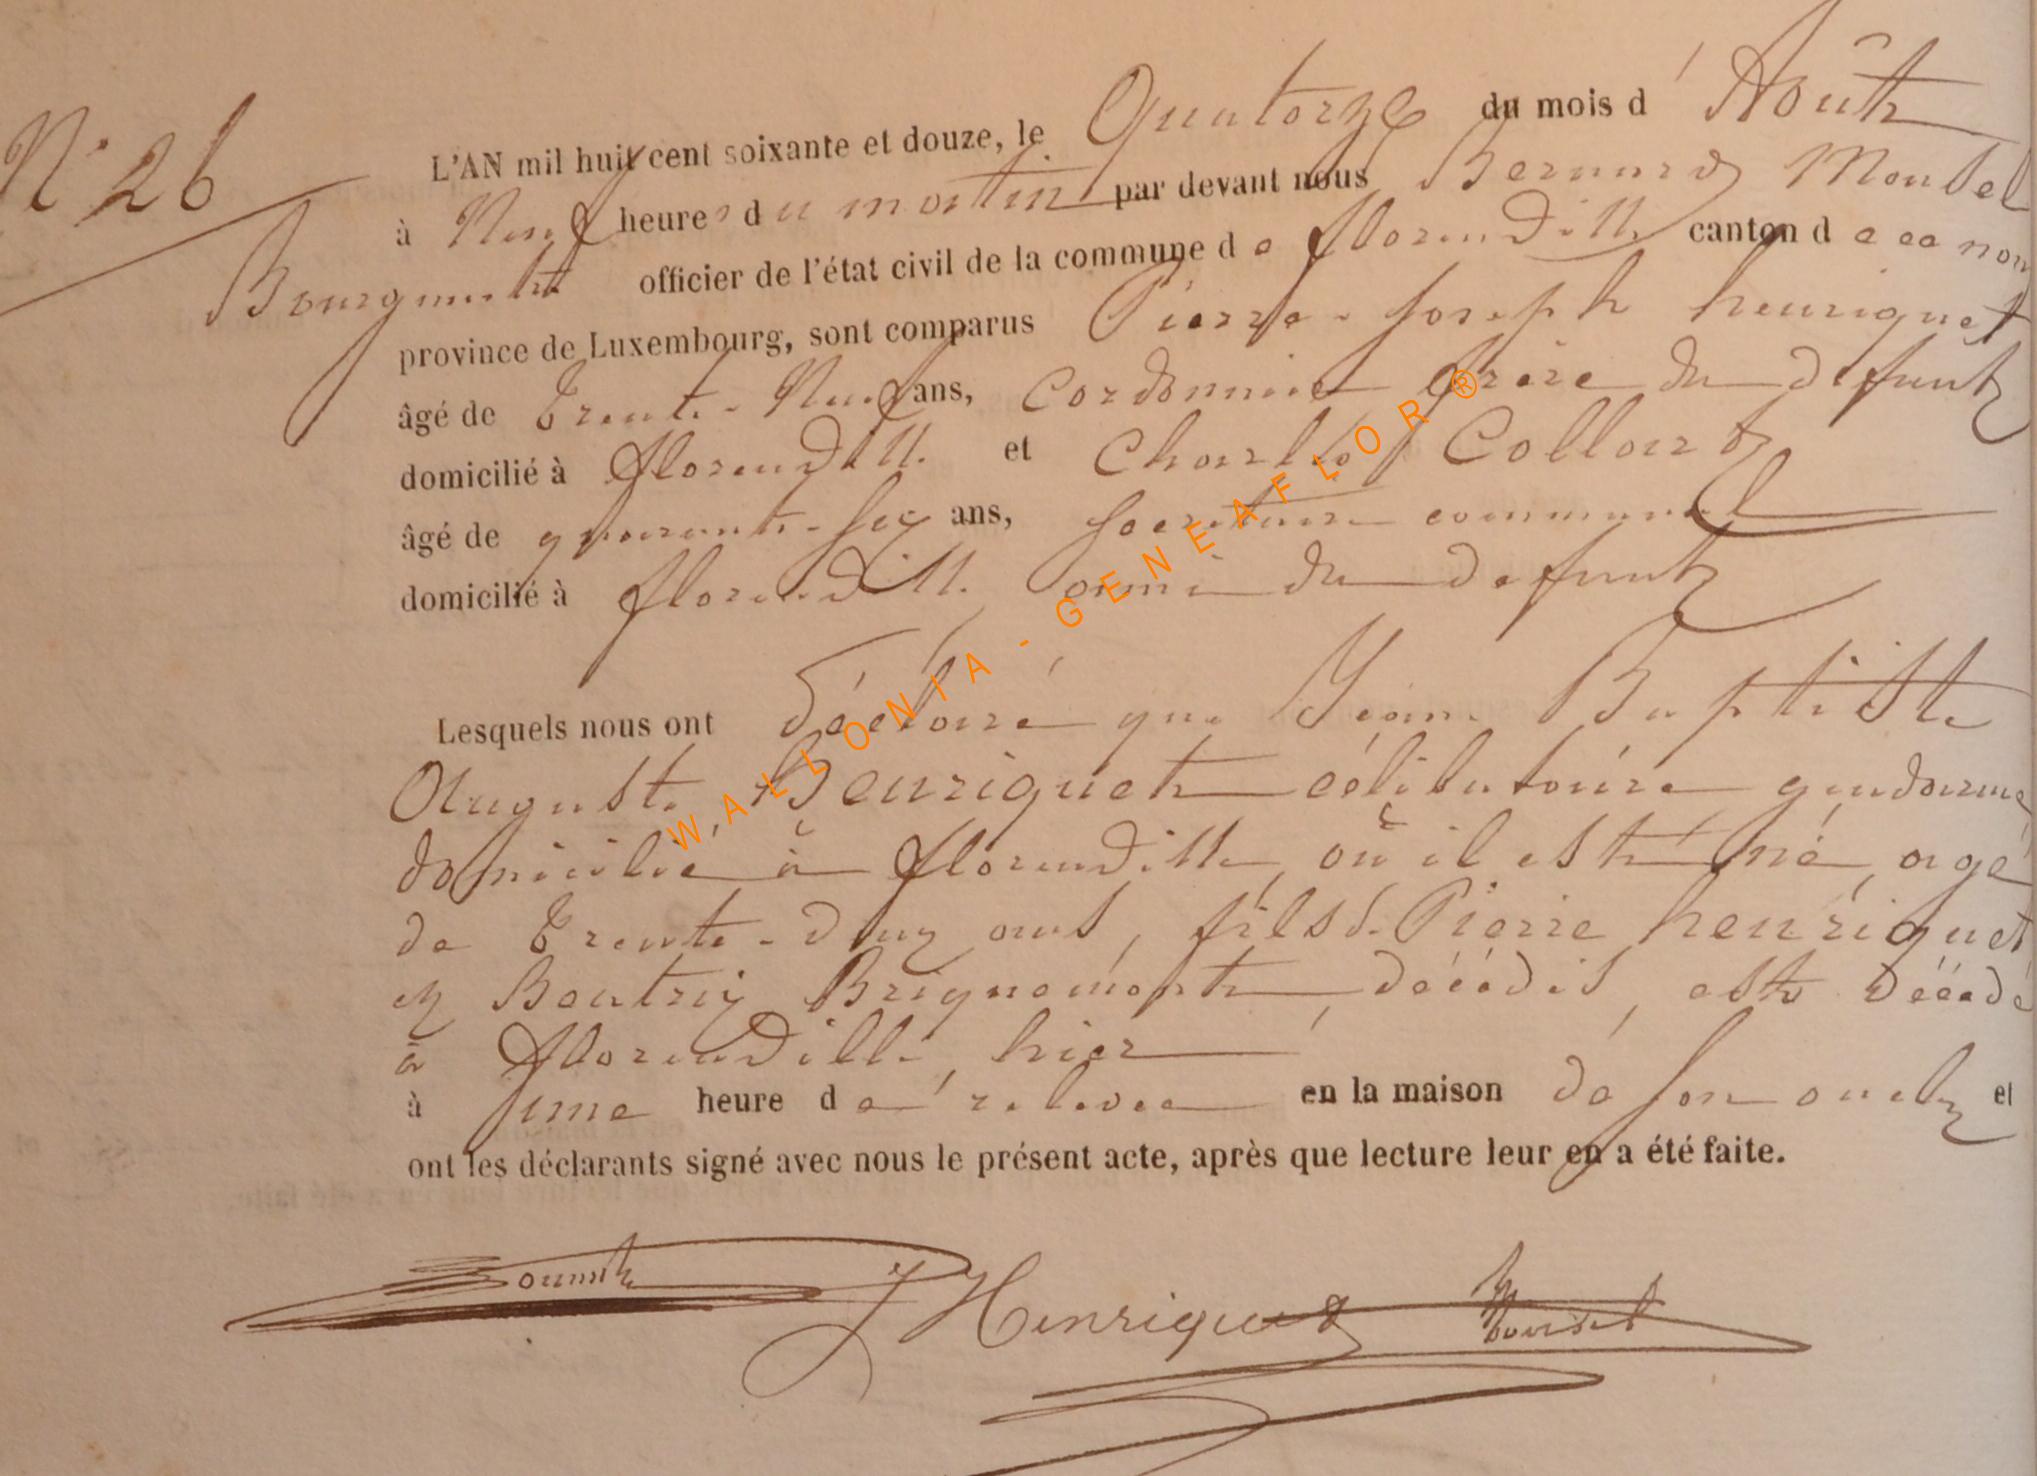 N° 26
L'AN mil huit cent soixante et douze, le Quatorze du mois d'Août
à Neuf heures du matin par devant nous Bernard Monbel
Bourgmestre officier de l'état civil de la commune de florenville canton de ce nom
province de Luxembourg, sont comparus Pierre-Joseph henriquet
âgé de Trente-Neuf ans, Cordonnier frère du défunt
domicilié à florenville et Charles Collart
âgé de quarante-six ans, secretaire communal
domicilié à florenville, ami du defunt
Lesquels nous ont déclaré que Jean Baptiste
Auguste Henriquet célibutaire gendarme
domicilié à florenville, où il est né, agé
de Trente-deux ans, fils d. Pierre henriquet
et Beatrix Brignemont, décédés, est décédé
à florenville, hier
à une heure de relevée en la maison de son oncle et
ont les déclarants signé avec nous le présent acte, après que lecture leur en a été faite.
J Henriquet
WALLONIA - GENEAFLOR ®